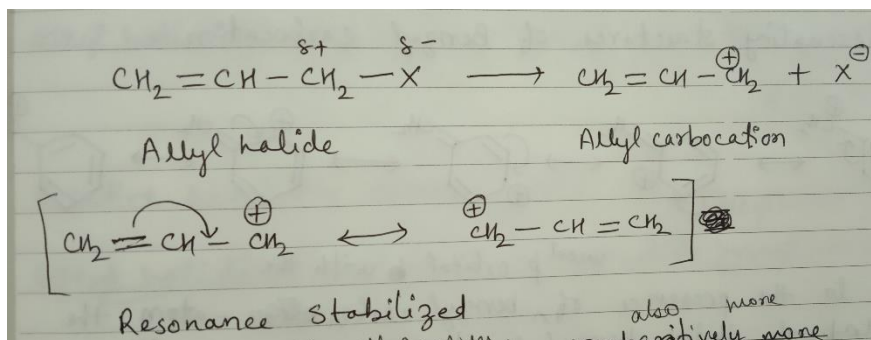 δ+ δ-
CH₂=CH-CH₂-X ⟶ CH₂=CH-CH₂⊕ + X⊖
Allyl halide Allyl carbocation
[CH₂=CH-CH₂⊕ ⟷ ⊕CH₂-CH=CH₂]
Resonance stabilized
also more
more